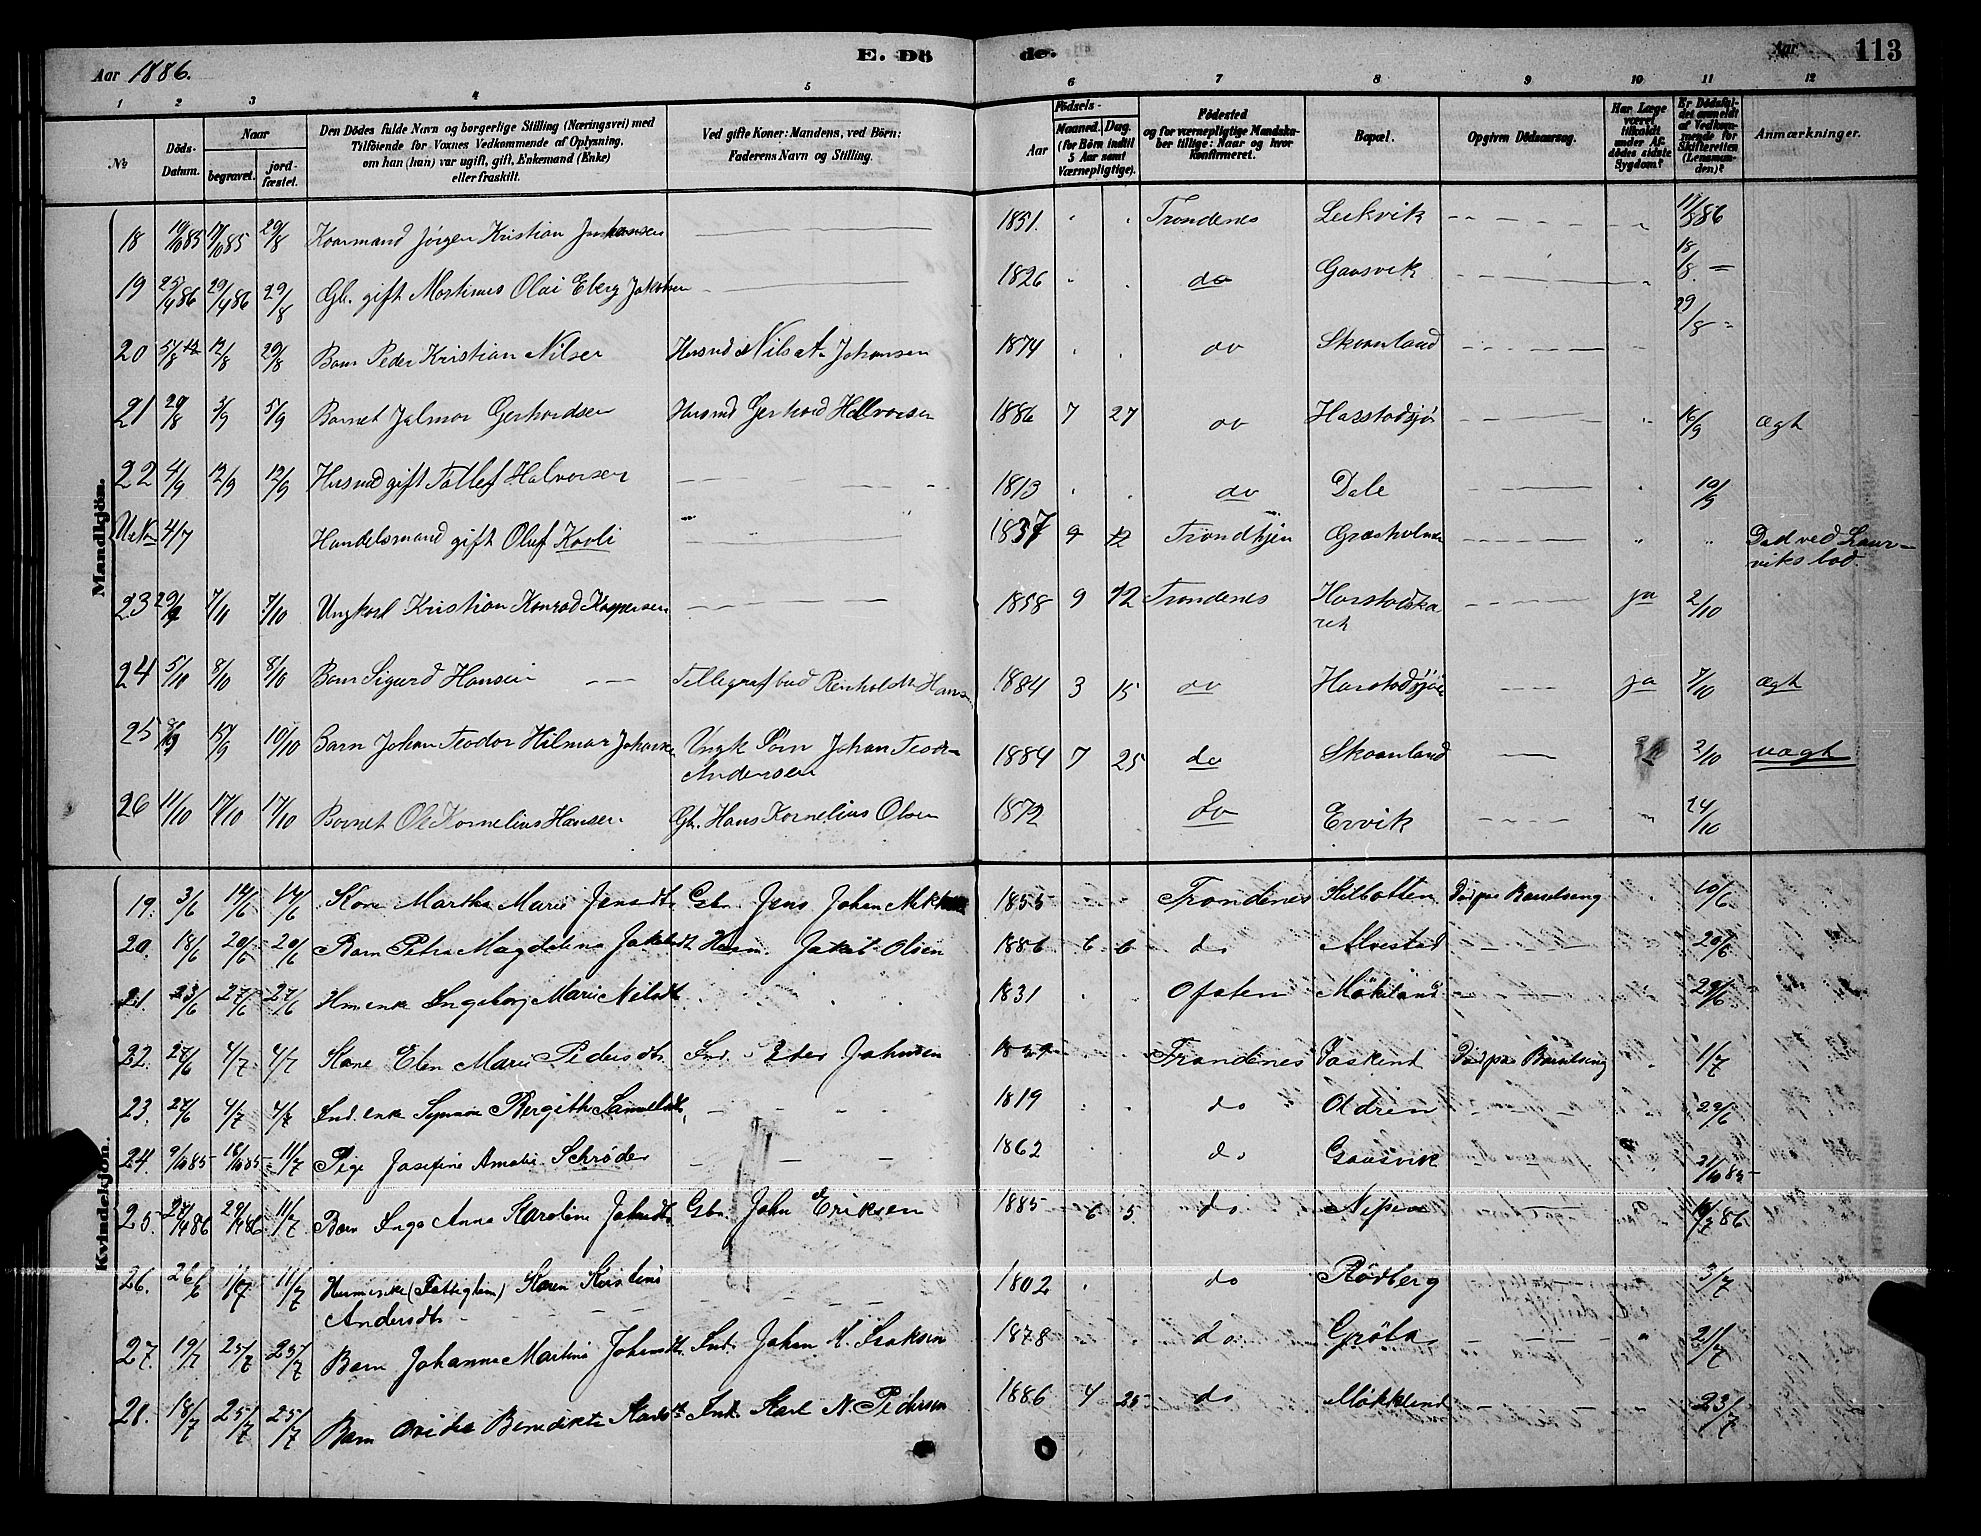 Aar 1886. E. Dö de. Aar 113
1 2 3 4 5 6 7 8 9 10 11 12
No
Döds-Datum.
Naar
begravet.
jord-fæstet.
Den Dödes fulde Navn og borgerlige Stilling (Næringsvei) med
Tilföiende for Voxnes Vedkommende af Oplysning,
om han (hun) var ugift, gift, Enkemand (Enke)
eller fraskilt.
Ved gifte Koner: Mandens, ved Börn:
Faderens Navn og Stilling.
Födsels-
Aar
Maaned. Dag.
(for Börn indtil
5 Aar samt
Værnepligtige).
Födested
og for værnepligtige Mandska-
ber tillige: Naar og hvor
konfirmeret.
Bopæl.
Opgiven Dödsaarsag.
Har Læge
været
tilkaldt
under Af-
dödes sidste
Sygdom?
Er Dödsfal-
det anmeldt
af Vedkom-
mende for
Skifteretten
(Lensman-
den)?
Anmærkninger.
Mandkjön.
18 10/10 85 17/10 85 29/8 Kaarmand Jørgen Kristian Johansen 1851. Trondenes Leikvik 11/8 86
19 25/4 86 29/4 86 29/8 Gb. gift Martinus Olai Eberg Jakobsen 1826 do Gausvik 18/8
20 5/8 12/8 29/8 Barn Peder Kristian Nilsen Husmd Nils A. Johansen 1874 do Skaanland 29/8
21 29/8 3/9 5/9 Barnet Jalmar Gerhardsen Husmd Gerhard Halvorsen 1886 7 27 do Harstadsjø 16/9 ægt
22 4/9 12/9 12/9 Husmd gift Tollef Halvorsen 1813 do Dale 10/9
4/7 Handelsmand gift Oluf Kavli 1837 9 12 Trondhjem Græsholmen Død ved Laur-
viks bad.
23 29/9 7/10 7/10 Ungkarl Kristian Konrad Kaspersen 1858 9 12 Trondenes Harstadska
ret ja 2/10
24 5/10 8/10 8/10 Barn Sigurd Hansen Tellegrafbud Reinholdt Hansen 1884 3 15 do Harstadsjøen ja 7/10 ægt
25 17/9 10/10 Barn Johan Teodor Hilmar Johansen Ungk Johan Teodor
Andersen 1884 7 25 do Skaanland 2/10 uægt
26 11/10 17/10 17/10 Barnet Ole Kornelius Hansen Gb. Hans Kornelius Olsen 1872 do Ervik 24/10
Kvindekjön.
19. 3/6 14/6 14/6 Kone Martha Marie Jensdt. Gbr. Jens Johan 1855 Trondenes Kilbotten Død paa Barselseng 10/6
20. 18/6 20/6 20/6 Barn Petra Magdalena Jakobdt Husm. Jakob Olsen 1886 6 6 do Alvestad 20/6
21. 23/6 27/6 27/6 Hmenk Ingeborg Marie Nilsdt 1831 Ofoten Møkland 29/6
22. 27/6 4/7 4/7 Kone Elen Marie Pedersdt. Ind. Peter Johnsen Trondenes Død paa Barselseng 1/7
23. 27/6 4/7 4/7 Ind. enk Bergithe Samuelsdt. 1819 do 29/6
24. 9/10 85 16/10 85 11/7 Pige Josefine Amalie Schrøder 1862 do Gausvik 21/10 85
25 27/4 86 29/4 86 11/7 Barn Inga Anna Karoline Johnsdt. Gbr. John Eriksen 1885 6 5 do Nipen 86
26. 26/6 11/7 11/7 (Fattiglem) Karen Kirstine
Andersdt. 1802 do Rödberg 3/7
27. 19/7 25/7 25/7 Barn Johanna Martine Johansdt. Ind. Johan M. Isaksen 1878 do Grøta 21/7
28. 18/7 25/7 25/7 Barn Benedikte Karlsdt Ind. Karl N. Pedersen 1886 4 25 do Møkkland 23/7